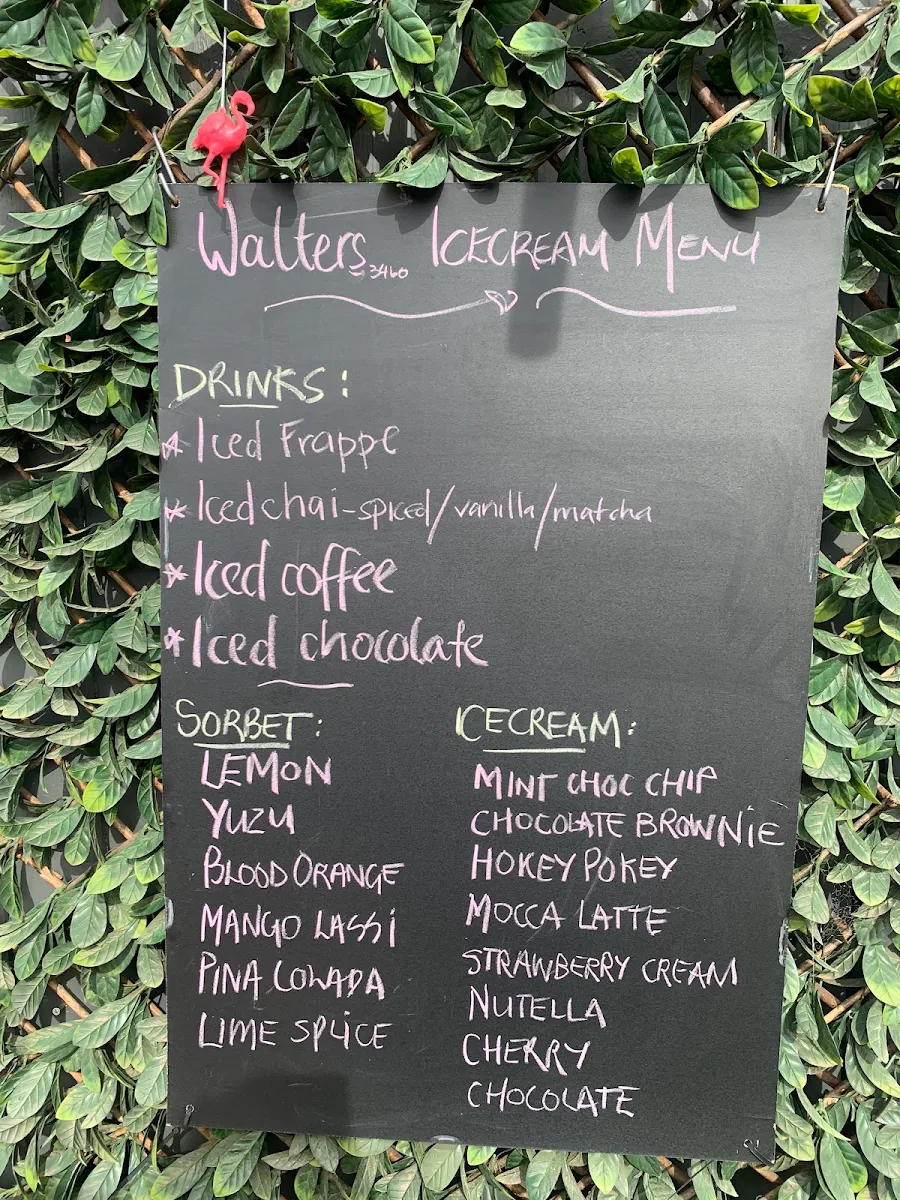 Walters 3460 ICECREAM MENU
DRINKS:
* Iced Frappe
* Iced chai-spiced/vanilla/matcha
* Iced coffee
* Iced chocolate
SORBET:
LEMON
YUZU
BLOOD ORANGE
MANGO LASSI
PINA COLADA
LIME SPLICE
ICECREAM:
MINT CHOC CHIP
CHOCOLATE BROWNIE
HOKEY POKEY
MOCCA LATTE
STRAWBERRY CREAM
NUTELLA
CHERRY
CHOCOLATE